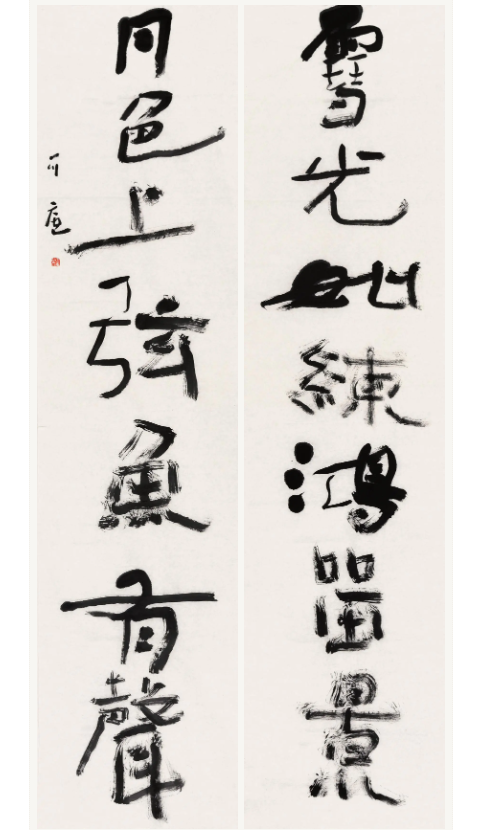 雪光如練鴻留景
月色上弦魚有聲